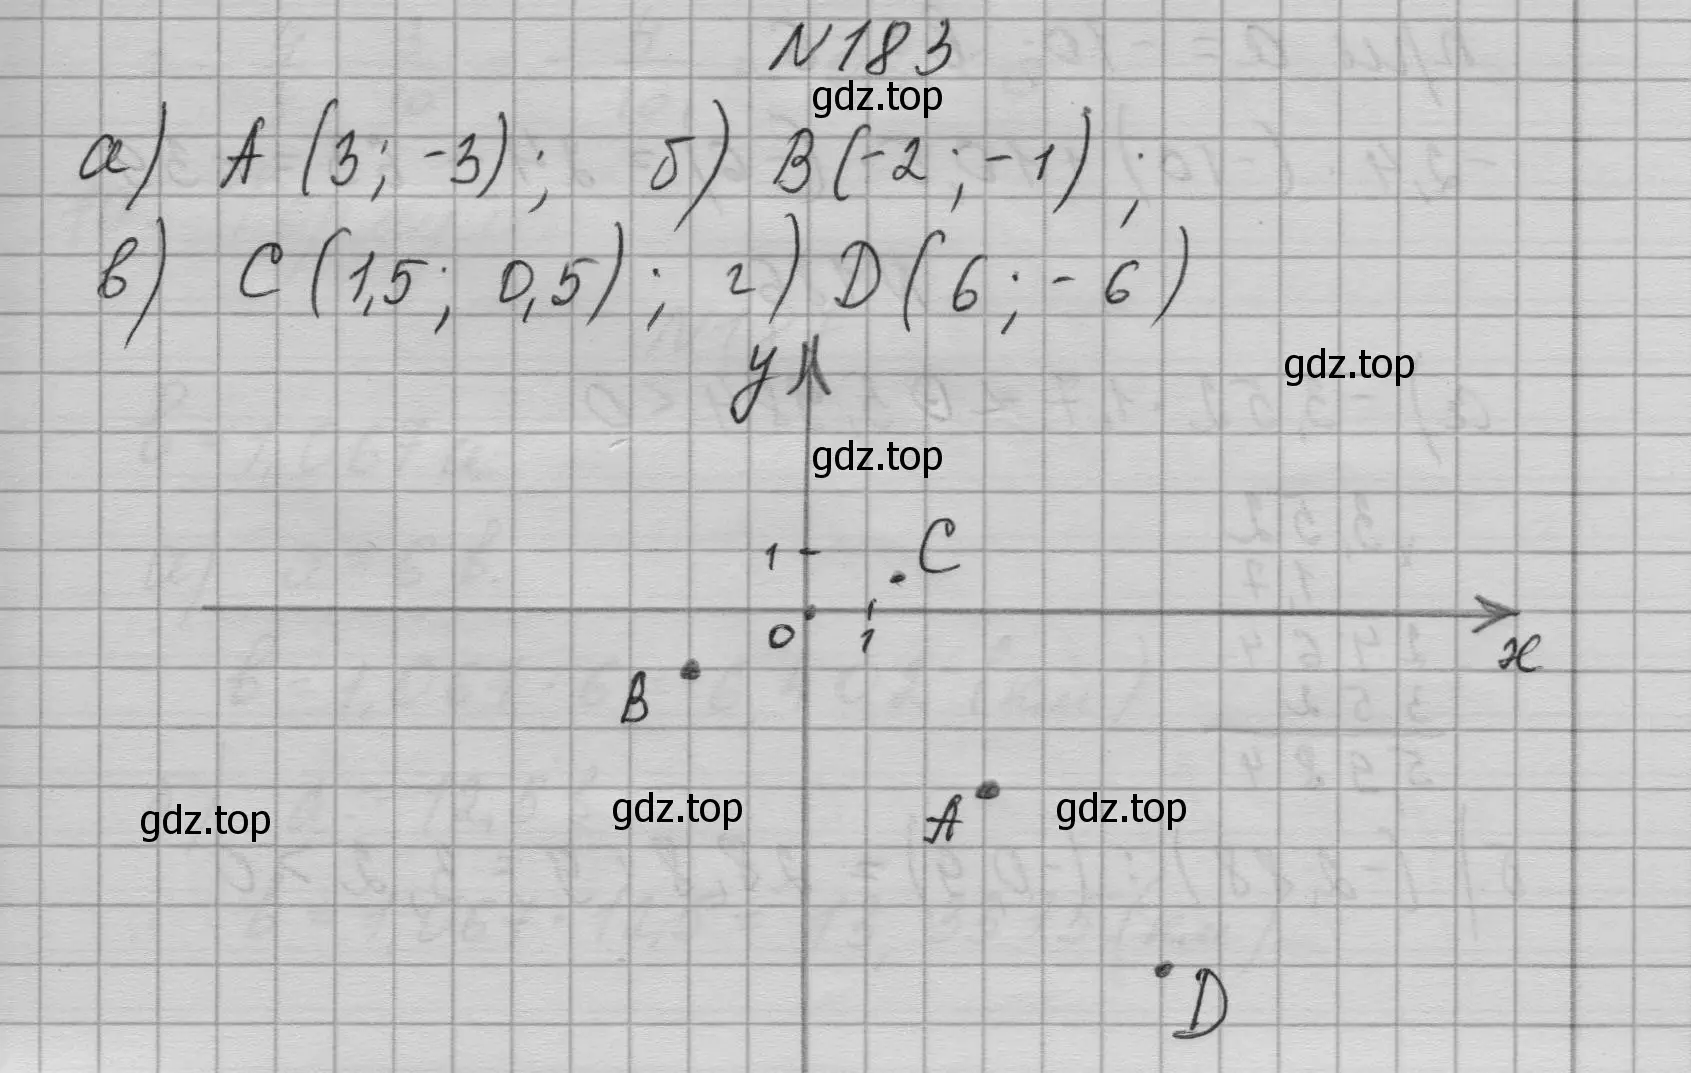 N183
gdz.top
а) A (3; -3); б) B (-2; -1);
в) C (1,5; 0,5); г) D (6; -6)
y
gdz.top
gdz.top
1
C
0
1
x
B
gdz.top
gdz.top
A
gdz.top
D